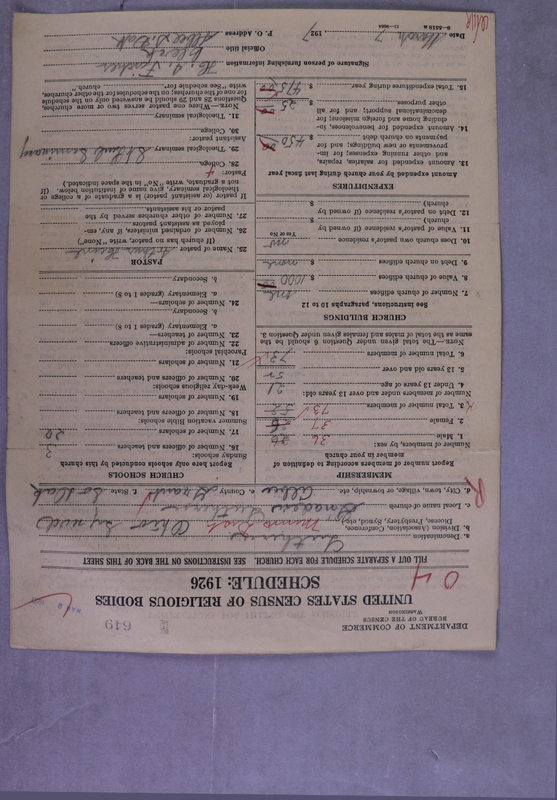 DEPARTMENT OF COMMERCE
BUREAU OF THE CENSUS
WASHINGTON
649
UNITED STATES CENSUS OF RELIGIOUS BODIES
SCHEDULE: 1926
04
FILL OUT A SEPARATE SCHEDULE FOR EACH CHURCH. SEE INSTRUCTIONS ON THE BACK OF THIS SHEET
a. Denomination Lutheran
b. Division (Association, Conference, Diocese, Presbytery, Synod, etc.) Ohio Synod
c. Local name of church Lutheran
d. City, town, village, or township, etc. Albee e. County Grant f. State So Dak
R
MEMBERSHIP
Report number of members according to definition of member in your church
Number of members, by sex:
1. Male 36
2. Female 37
3. Total number of members 73
Number of members under and over 13 years old:
4. Under 13 years of age 21
5. 13 years old and over 52
6. Total number of members 73
NOTE.—The total given under Question 6 should be the same as the total of males and females given under Question 3.
CHURCH BUILDINGS
See instructions, paragraphs 10 to 12
7. Number of church edifices one
8. Value of church edifices $ 1000
9. Debt on church edifices $ none
10. Does church own pastor's residence no
Yes or No
11. Value of pastor's residence (if owned by church) $
12. Debt on pastor's residence (if owned by church) $
EXPENDITURES
Amount expended by your church during last fiscal year
13. Amount expended for salaries, repairs, and other running expenses; for improvements or new buildings; and for payments on church debt $ 450
14. Amount expended for benevolences, including home and foreign missions; for denominational support; and for all other purposes $ 25
15. Total expenditures during year $ 475
CHURCH SCHOOLS
Report here only schools conducted by this church
Sunday schools:
16. Number of officers and teachers 3
17. Number of scholars 20
Summer vacation Bible schools:
18. Number of officers and teachers
19. Number of scholars
Week-day religious schools:
20. Number of officers and teachers
21. Number of scholars
Parochial schools:
22. Number of administrative officers
23. Number of teachers—
a. Elementary (grades 1 to 8)
b. Secondary
24. Number of scholars—
a. Elementary (grades 1 to 8)
b. Secondary
PASTOR
25. Name of pastor
(If church has no pastor, write "None")
26. Number of ordained ministers, if any, employed as assistant pastors
27. Number of other churches served by the pastor or his assistants
If pastor (or assistant pastor) is a graduate of a college or theological seminary, give name of institution below. (If not a graduate, write "No" in the space indicated.)
Pastor:
28. College
29. Theological seminary St Paul Seminary
Assistant pastor:
30. College
31. Theological seminary
NOTE.—Where one pastor serves two or more churches, Questions 28 and 29 should be answered only on the schedule for one of the churches; on the schedules for the other churches, write "See schedule for church."
Signature of person furnishing information H. J. Fischer
Official title Clerk
P. O. Address Albee S. Dak
Date March 7, 1927